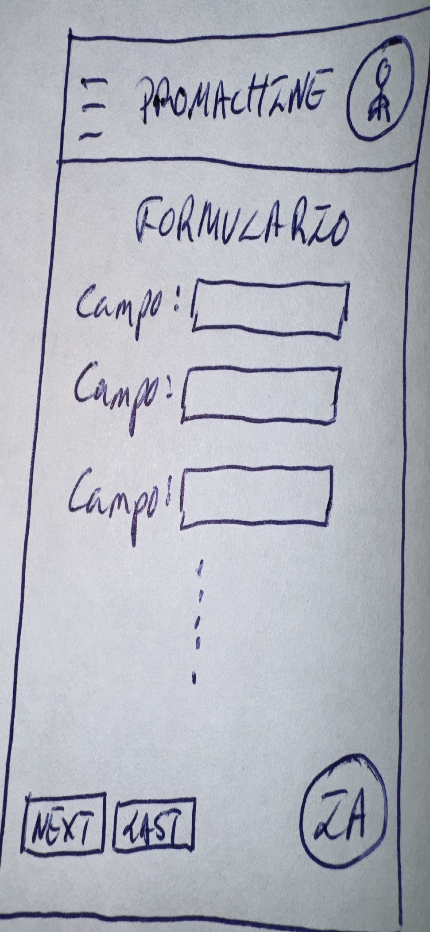 PROMACHINE
FORMULARIO
Campo:
Campo:
Campo:
NEXT LAST
IA